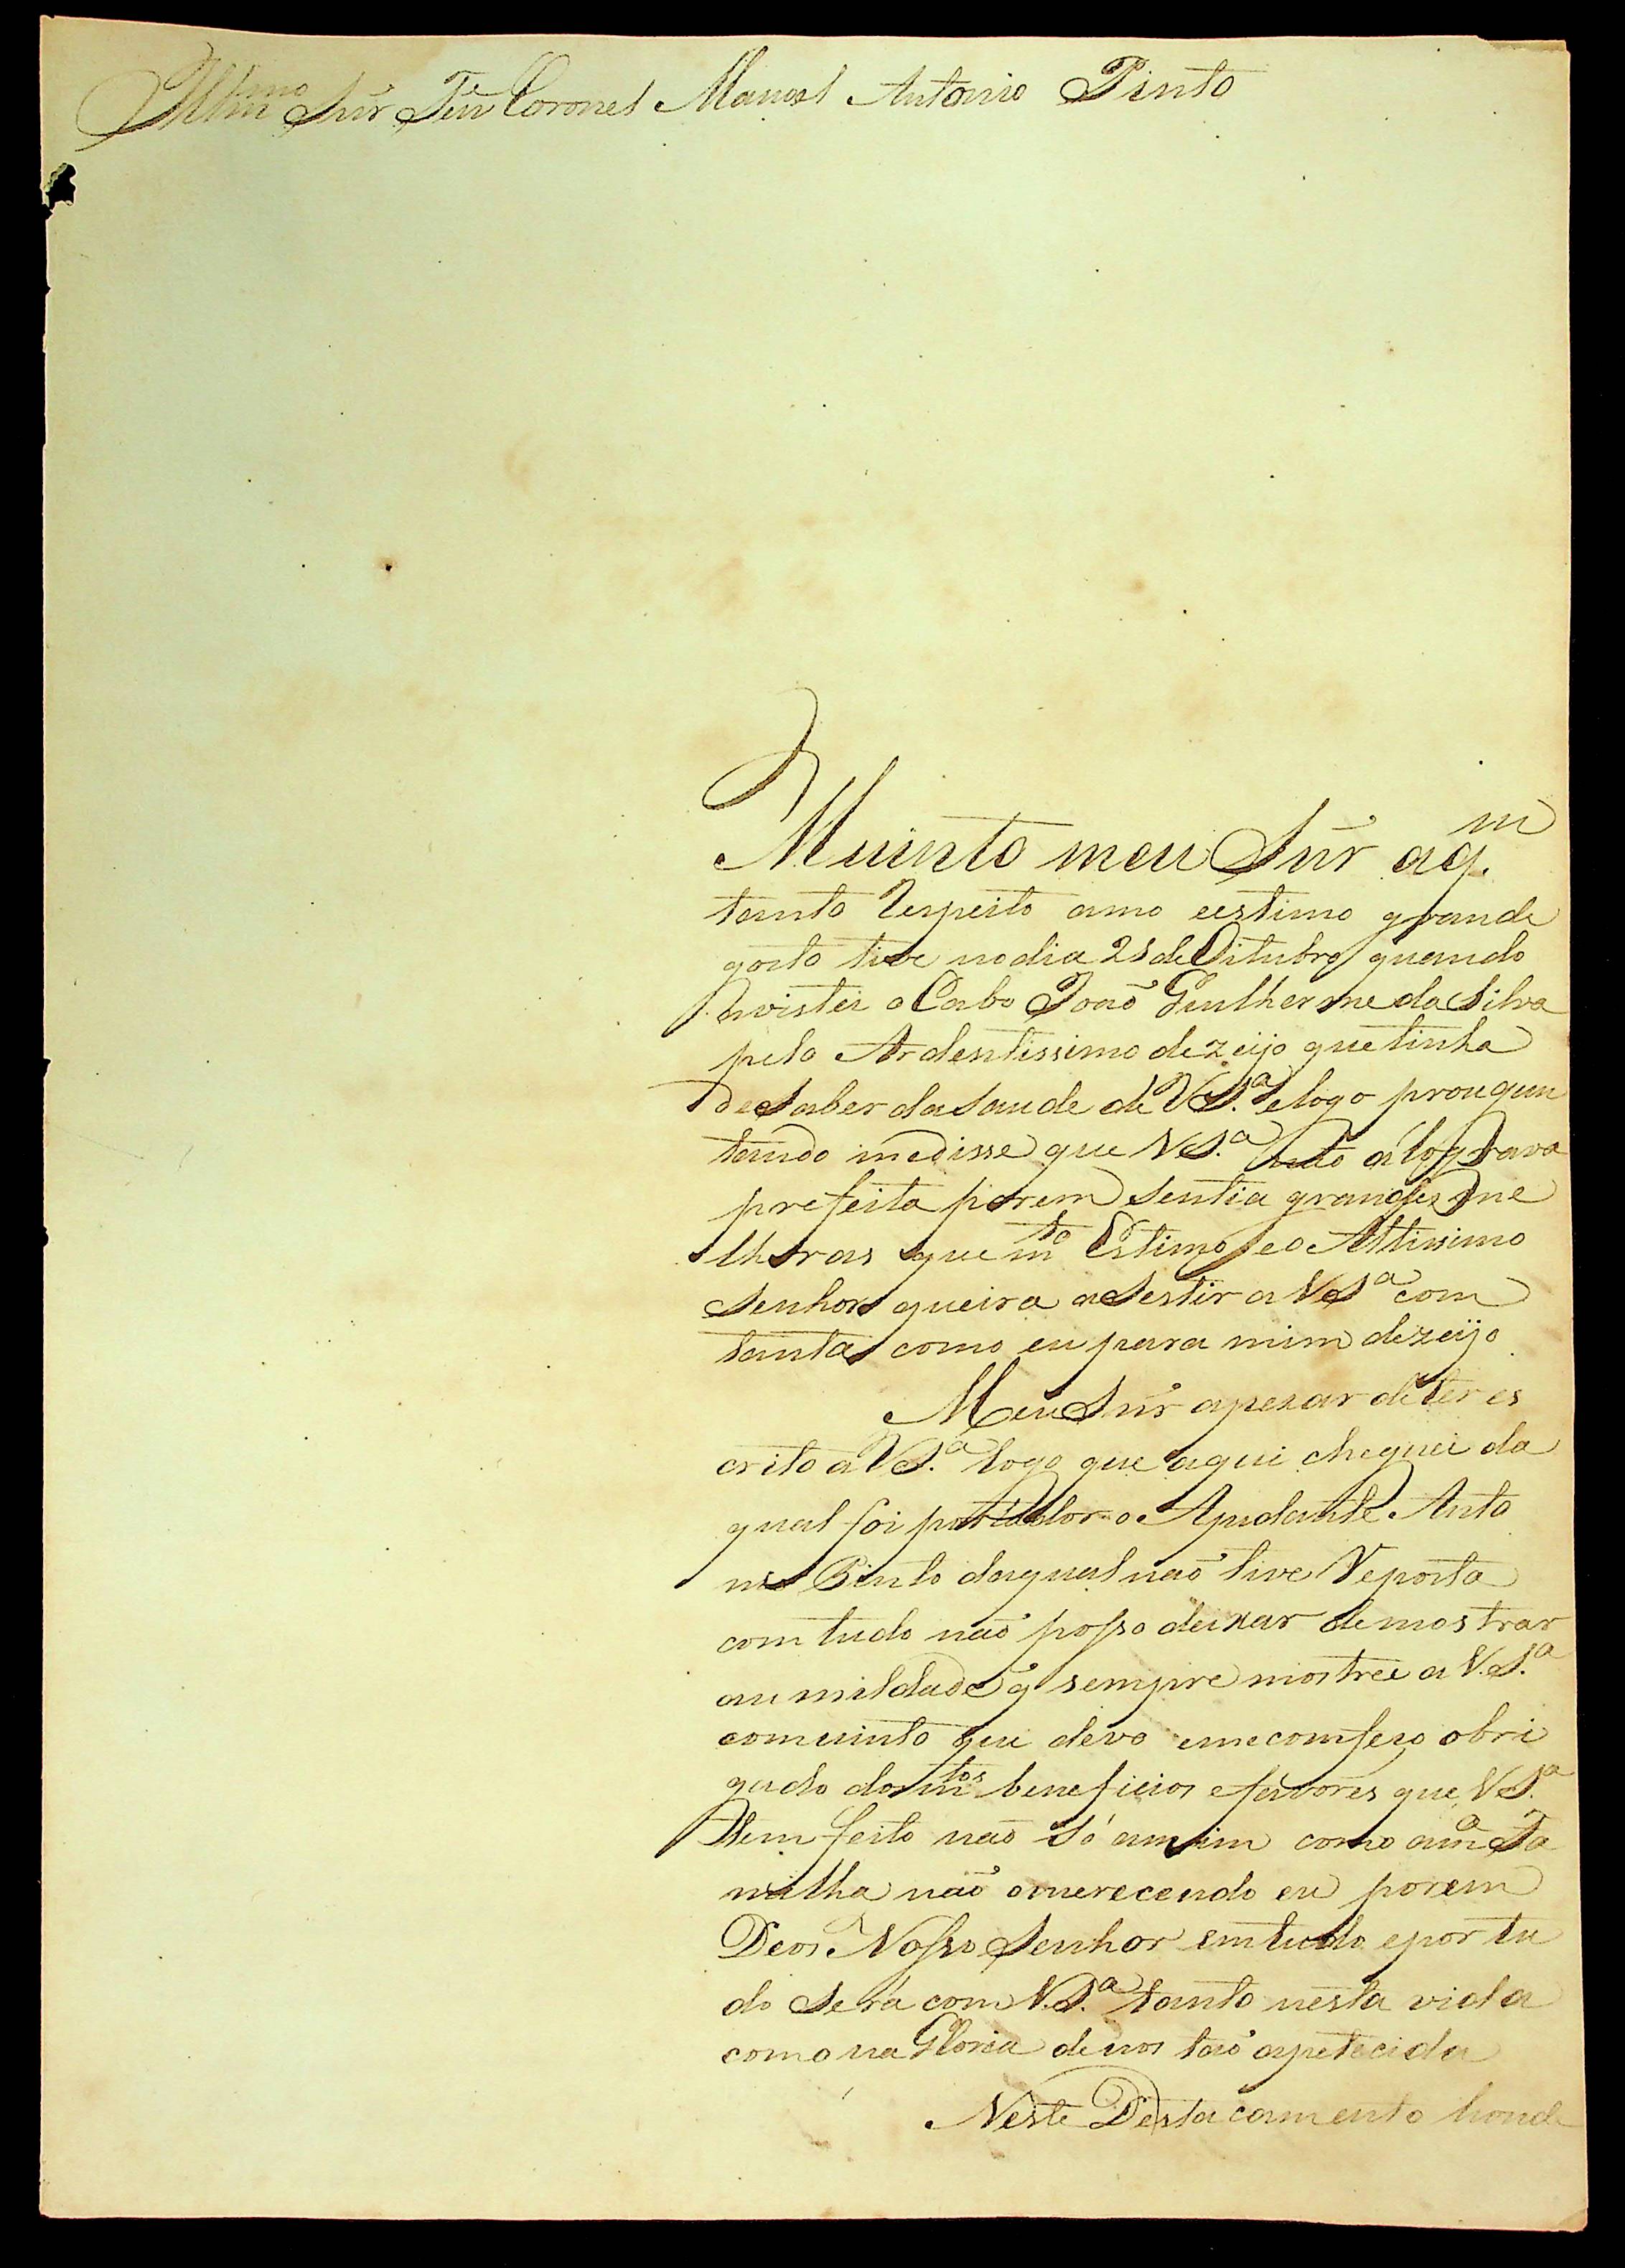 Illmo Snr Ten Coronel Manoel Antonio Pinto
Muinto meu Snr aqm
tanto Respeito amo eestimo grande
gosto tive nodia 28 de Oitubro quando
avistei o Cabo João Guilherme da Silva
pelo Ardentissimo dezeijo quetinha
deSaber daSaude de VSª elogo prougun
tando medisse que VSª não a lograva
prefeita porem sentia grandes me
lhoras que mto Estimo eo Altissimo
Senhor queira aSestir a VSª com
tanta como eu para mim dezeijo
Meu Snr apezar deter es
crito a VSª logo que aqui cheguei da
qual foi portador o Ajudante Anto
nio Pinto daqual não tive Reposta
com tudo não posso deixar demostrar
aumildade q sempre mostrei a V.Sª
comuinto que devo emecomfeço obri
gado dos mtos beneficios efavores que VSª
tem feito não só amim como amª Fa
milha não omerecendo eu porem
Deos Nosso Senhor emtudo eportu
do Será com V.Sª tanto nesta vida
como na Gloria denos tão apetecida
Neste Destacamento honde